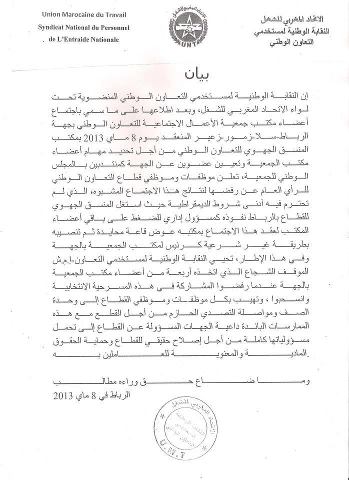 Union Marocaine du Travail
Syndicat National du Personnel
de L'Entraide Nationale
الاتحاد المغربي للشغل
النقابة الوطنية لمستخدمي
التعاون الوطني
UMT
بيان
إن النقابة الوطنية لمستخدمي التعاون الوطني المنضوية تحت
لواء الاتحاد المغربي للشغل، وبعد اطلاعها على ما سمي باجتماع
أعضاء مكتب جمعية الأعمال الاجتماعية للتعاون الوطني بجهة
الرباط-سلا-زمور-زعير المنعقد يوم 8 ماي 2013 بمكتب
المنسق الجهوي للتعاون الوطني من أجل تحديد مهام أعضاء
مكتب الجمعية وتعيين عضوين عن الجهة كمنتدبين بالمجلس
الوطني للجمعية، تعلن موظفات وموظفي قطاع التعاون الوطني
للرأي العام عن رفضها لنتائج هذا الاجتماع المشبوه، الذي لم
تحترم فيه أدنى شروط الديمقراطية حيث استغل المنسق الجهوي
للقطاع بالرباط نفوذه كمسؤول إداري للضغط على باقي أعضاء
المكتب لعقد هذا الاجتماع بمكتبه عوض قاعة محايدة ثم تنصيبه
بطريقة غير شرعية كرئيس لمكتب الجمعية بالجهة
وفي هذا الإطار، تحيي النقابة الوطنية لمستخدمي التعاون-ا.م.ش
الموقف الشجاع الذي اتخذه أربعة من أعضاء مكتب الجمعية
بالجهة عندما رفضوا المشاركة في هذه المسرحية الانتخابية
وانسحبوا، وتهيب بكل موظفات وموظفي القطاع إلى وحدة
الصف ومواصلة التصدي الحازم من أجل القطع مع هذه
الممارسات البائدة داعية الجهات المسؤولة عن القطاع إلى تحمل
مسؤولياتها كاملة من أجل إصلاح حقيقي للقطاع وحماية الحقوق
المادية والمعنوية للعاملين به
وما ضاع حق وراءه مطالب
الرباط في 8 ماي 2013
U.M.T